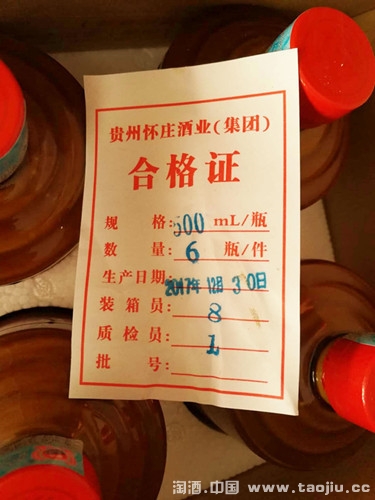 贵州怀庄酒业(集团)
合格证
规 格:500 mL/瓶
数 量: 6 瓶/件
生产日期:2017年12月30日
装箱员: 8
质检员: 1
批 号:
淘酒.中国 www.taojiu.cc